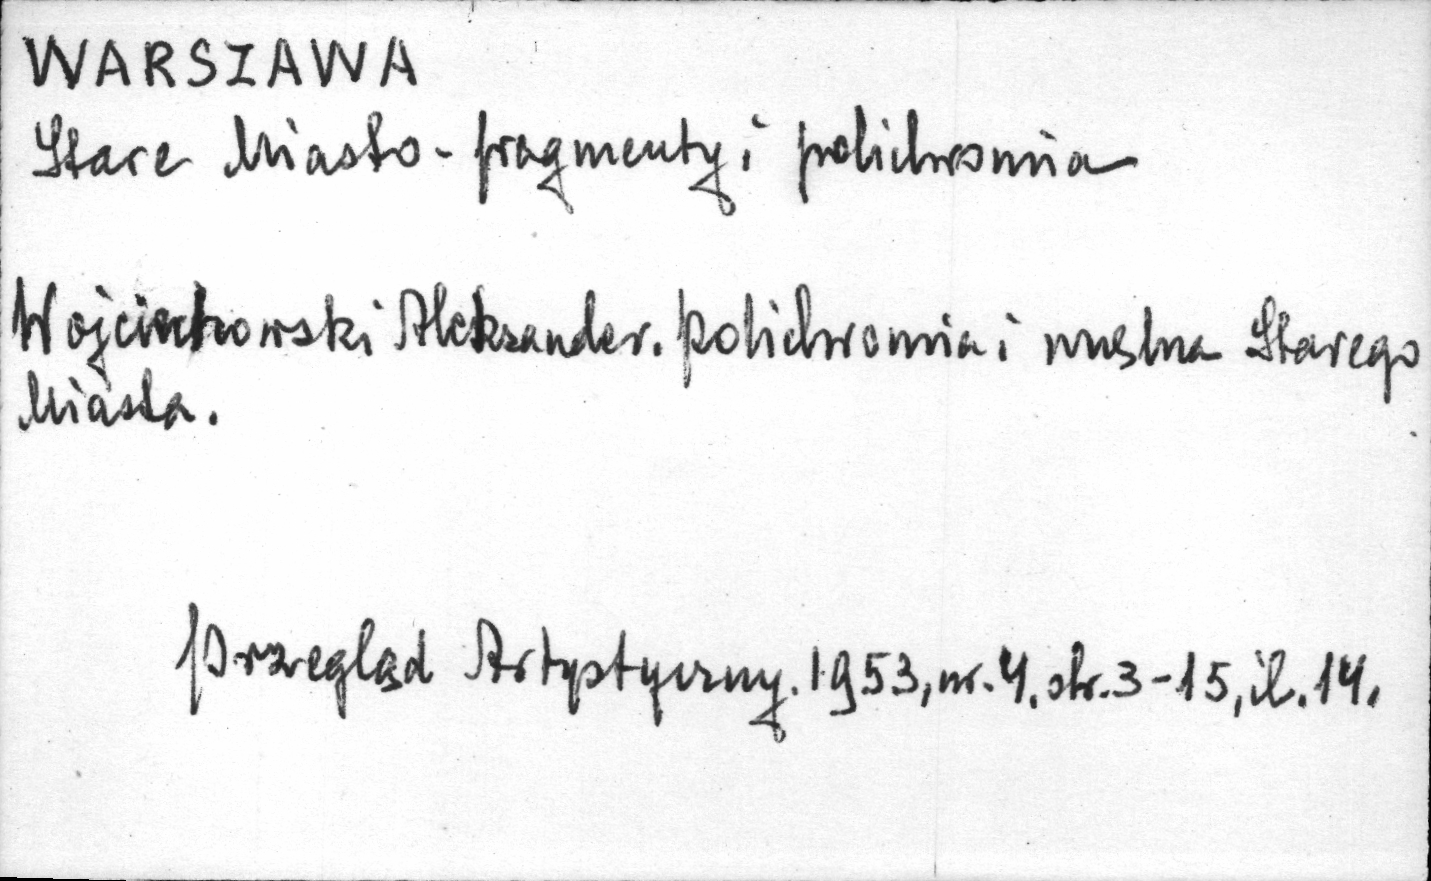 WARSZAWA
Stare Miasto - fragmenty i polichromia
Wojciechowski Aleksander. Polichromia i Starego
Miasta.
Przegląd Artystyczny. 1953, nr. 4, str. 3-15, il. 14.